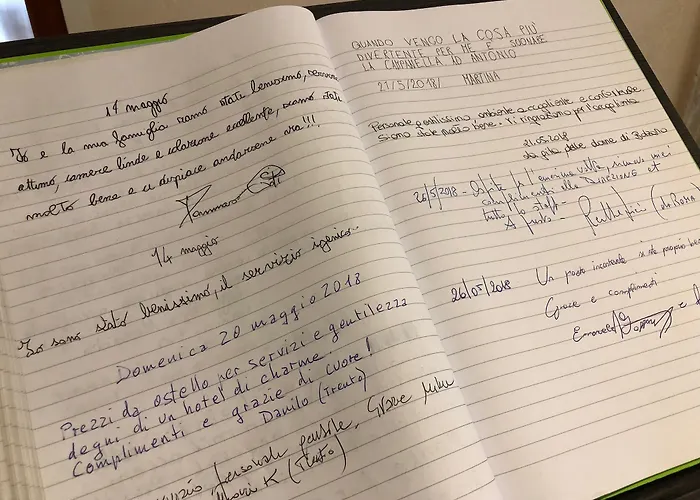 14 maggio
Io e la mia famiglia siamo stati benissimo, servizio
ottimo, camere linde e colazione eccellente, siamo stati
molto bene e ci dispiace andarcene via!!!
14 maggio
Io sono stato benissimo, il servizio igenico
Domenica 20 maggio 2018
Prezzi da ostello per servizi e gentilezza
degni di un hotel di charme.
Complimenti e grazie di cuore!
Danilo (Trento)
personale gentile, Grazie mille
K (Trento)
QUANDO VENGO LA COSA PIU'
DIVERTENTE PER ME È SUONARE
LA CAMPANELLA AD ANTONIO
21/5/2018/ MARTINA
Personale gentilissimo, ambiente accogliente e confortevole.
Siamo state molto bene. Vi ringraziamo per l'accoglienza
21.05.2018
la gita delle dame di
26/5/2018 - Ospite per l'ennesima volta, rinnovo i miei
complimenti alla DIREZIONE et
tutto lo staff -
A presto -
26/05/2018 Un posto incantevole si sta proprio bene
Grazie e complimenti
Emanuela